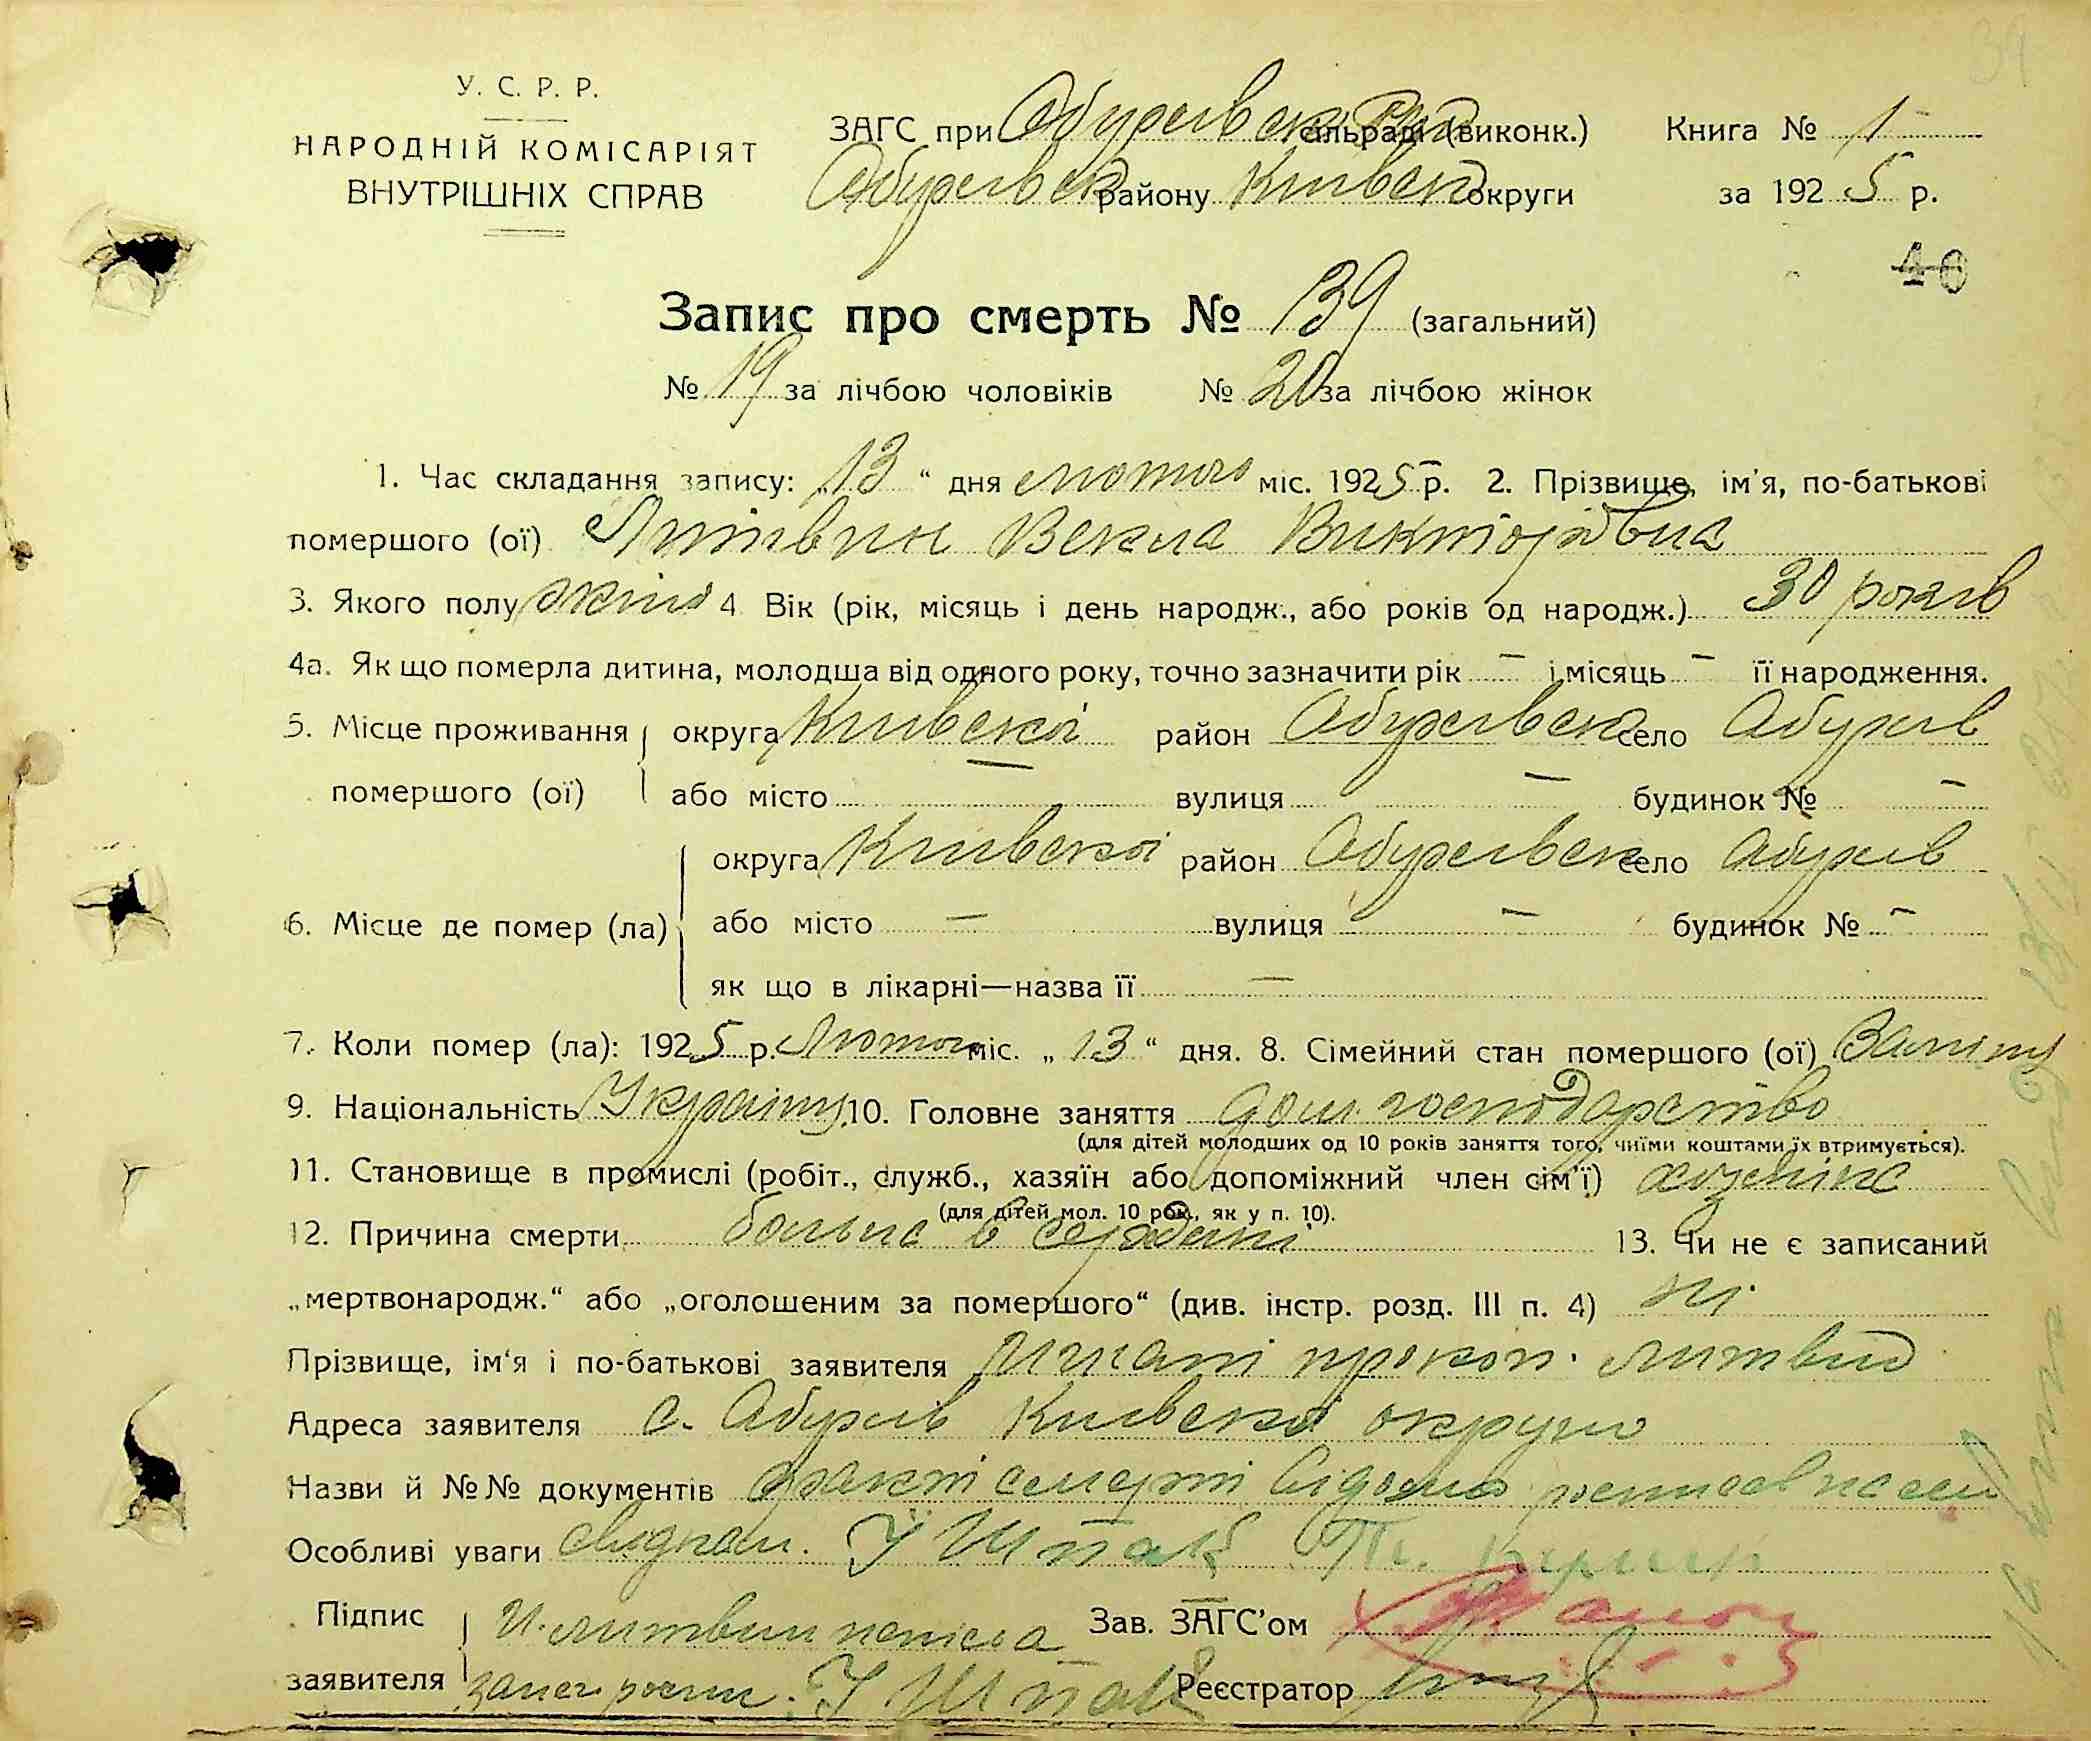 У. С. Р. Р.
НАРОДНІЙ КОМІСАРІЯТ
ВНУТРІШНІХ СПРАВ
ЗАГС при Обухівск сільраді (виконк.) Книга № 1
Обухівск району Київск округи за 1925 р.
40
Запис про смерть № 39 (загальний)
№ 19 за лічбою чоловіків № 20 за лічбою жінок
1. Час складання запису: „13“ дня лютого міс. 1925 р. 2. Прізвище, ім'я, по-батькові
помершого (ої) Литвин Векла Викторівна
3. Якого полу жіно 4 Вік (рік, місяць і день народж., або років од народж.) 30 років
4а. Як що померла дитина, молодша від одного року, точно зазначити рік — і місяць — її народження.
5. Місце проживання округа Київскої район Обухівск село Обухів
помершого (ої) або місто — вулиця — будинок № —
округа Київскої район Обухівск село Обухів
6. Місце де помер (ла) або місто — вулиця — будинок № —
як що в лікарні—назва її —
7. Коли помер (ла): 1925 р. Лютого міс. „13“ дня. 8. Сімейний стан помершого (ої)
9. Національність Україну 10. Головне заняття дом. господарство
(для дітей молодших од 10 років заняття того, чиїми коштами їх втримується).
11. Становище в промислі (робіт., служб., хазяїн або допоміжний член сім'ї) хозяіка
(для дітей мол. 10 рок., як у п. 10).
12. Причина смерти больна в середені 13. Чи не є записаний
„мертвонародж.“ або „оголошеним за помершого“ (див. інстр. розд. III п. 4) ні
Прізвище, ім'я і по-батькові заявителя Игнат прокоп. литвин
Адреса заявителя с. Обухів Київскої округи
Назви й №№ документів факт смерті відомо
Особливі уваги свідкам. І Шпак
Підпис И. литвин Зав. ЗАГС'ом
заявителя І Шпак Реєстратор